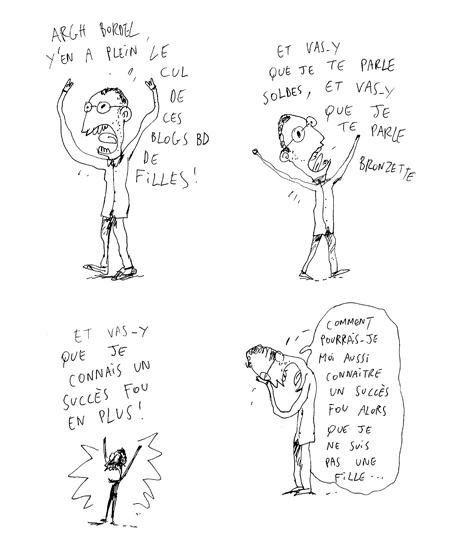 ARGH BORDEL,
Y'EN A PLEIN LE
CUL
DE
CES
BLOGS BD
DE
FILLES!
ET VAS-Y
QUE JE TE PARLE
SOLDES, ET VAS-Y
QUE JE
TE PARLE
BRONZETTE
ET VAS-Y
QUE JE
CONNAIS UN
SUCCÈS FOU
EN PLUS!
COMMENT
POURRAIS-JE
MOI AUSSI
CONNAÎTRE
UN SUCCÈS
FOU ALORS
QUE JE
NE SUIS
PAS UNE
FILLE...